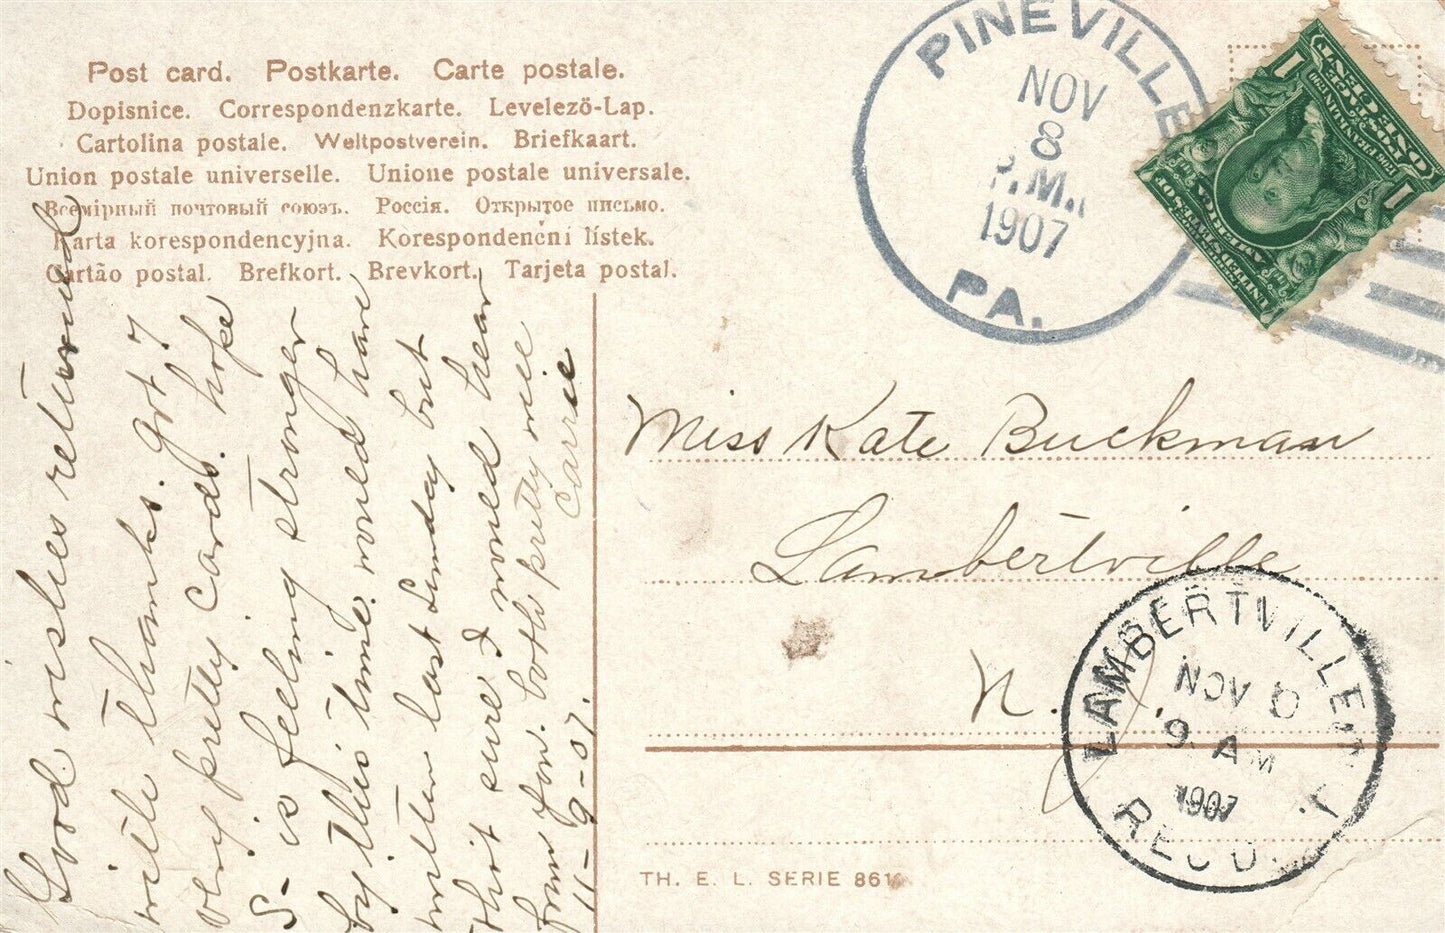 Post card. Postkarte. Carte postale.
Dopisnice. Correspondenzkarte. Levelező-Lap.
Cartolina postale. Weltpostverein. Briefkaart.
Union postale universelle. Unione postale universale.
Всемірный почтовый союзъ. Россія. Открытое письмо.
Karta korespondencyjna. Korespondenční lístek.
Cartão postal. Brefkort. Brevkort. Tarjeta postal.
PINEVILLE
NOV
8
P.M.
1907
PA.
ONE CENT
1 1
UNITED STATES OF AMERICA
Good wishes returned
with thanks. Got 7
very pretty cards. hope
S- is feeling stronger
by this time. would have
written last Sunday but
thot sure I would hear
from you. both pretty nice
Carrie
11-9-07.
Miss Kate Buckman
Lambertville
N. J.
LAMBERTVILLE
NOV
9 AM
1907
N. J.
REC'D.
TH. E. L. SERIE 861